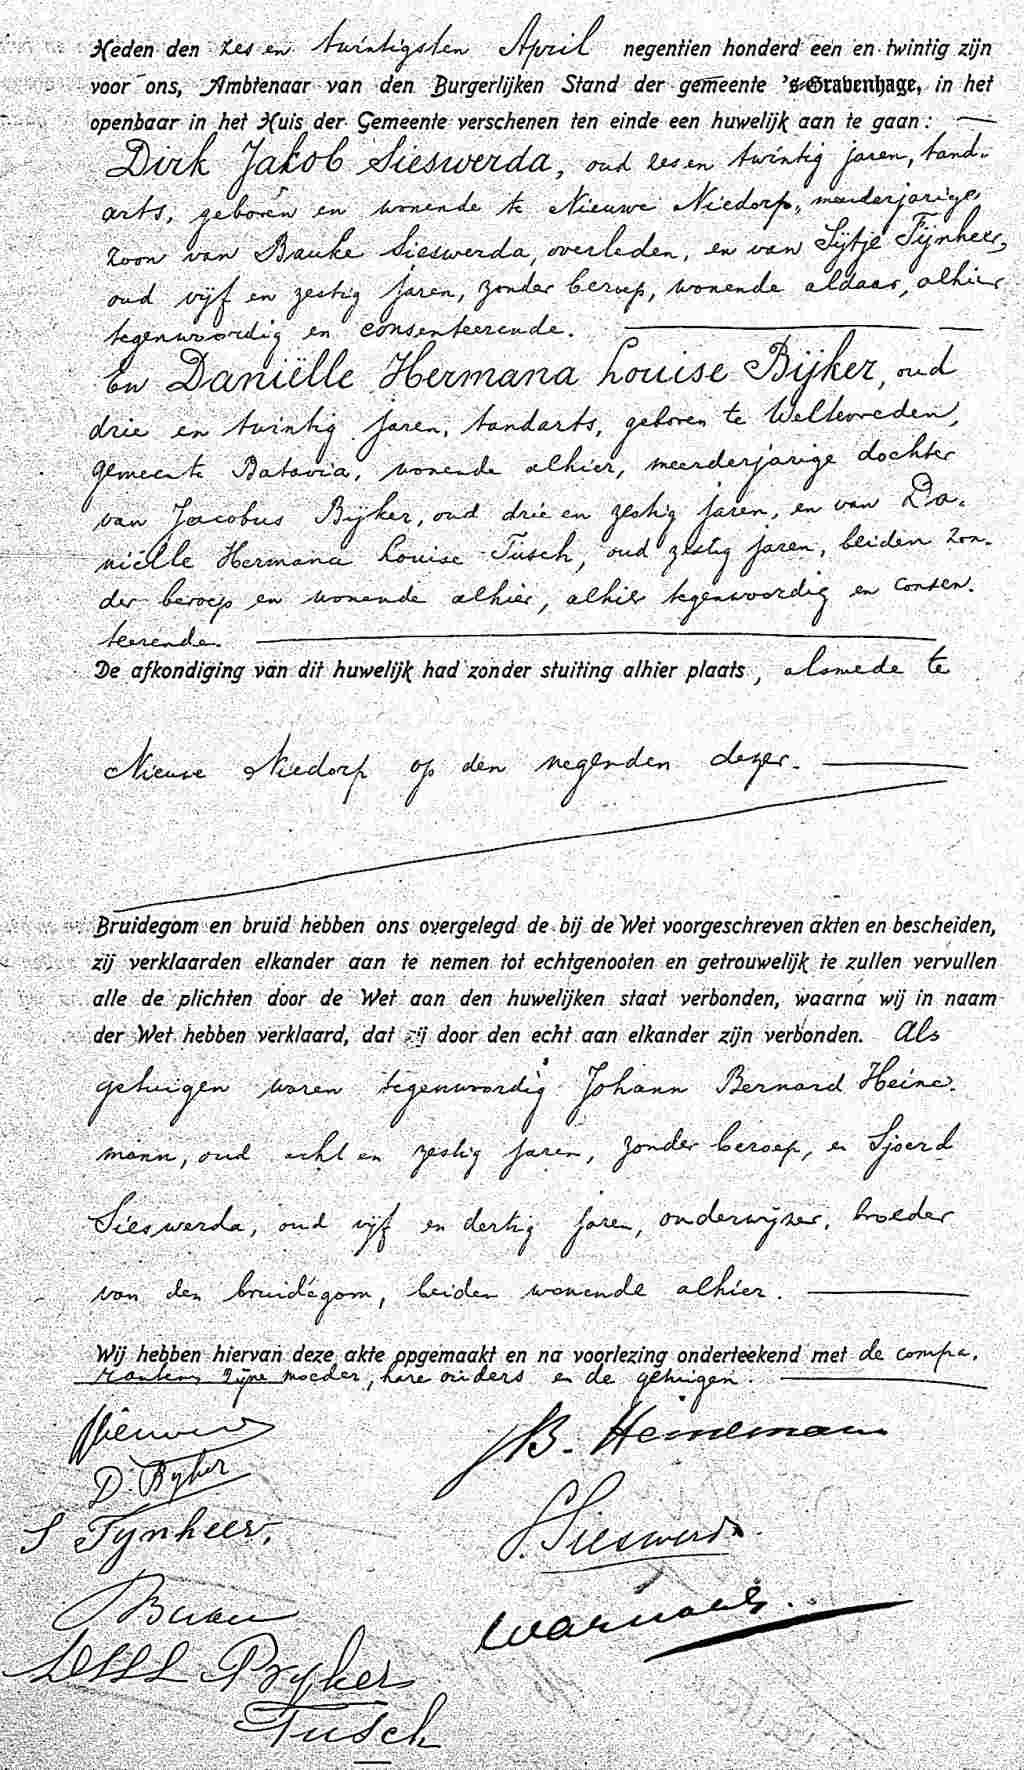 Heden den zes en twintigsten April negentien honderd een en twintig zijn
voor ons, Ambtenaar van den Burgerlijken Stand der gemeente 's-Gravenhage, in het
openbaar in het Huis der Gemeente verschenen ten einde een huwelijk aan te gaan:
Dirk Jakob Sieswerda, oud zes en twintig jaren, tand-
arts, geboren en wonende te Nieuwe Niedorp, meerderjarige
zoon van Bauke Sieswerda, overleden, en van Sijtje Tijnheer,
oud vijf en zestig jaren, zonder beroep, wonende aldaar, alhier
tegenwoordig en consenteerende.
En Daniëlle Hermana Louise Bijker, oud
drie en twintig jaren, tandarts, geboren te Weltevreden,
gemeente Batavia, wonende alhier, meerderjarige dochter
van Jacobus Bijker, oud drie en zestig jaren, en van Da-
niëlle Hermana Louise Tüsch, oud zestig jaren, beiden zon-
der beroep en wonende alhier, alhier tegenwoordig en consen-
teerende.
De afkondiging van dit huwelijk had zonder stuiting alhier plaats, alsmede te
Nieuwe Niedorp op den negenden dezer.
Bruidegom en bruid hebben ons overgelegd de bij de Wet voorgeschreven akten en bescheiden,
zij verklaarden elkander aan te nemen tot echtgenooten en getrouwelijk te zullen vervullen
alle de plichten door de Wet aan den huwelijken staat verbonden, waarna wij in naam
der Wet hebben verklaard, dat zij door den echt aan elkander zijn verbonden. Als
getuigen waren tegenwoordig Johann Bernard Heine-
mann, oud acht en zestig jaren, zonder beroep, en Sjoerd
Sieswerda, oud vijf en dertig jaren, onderwijzer, broeder
van den bruidegom, beiden wonende alhier.
Wij hebben hiervan deze akte opgemaakt en na voorlezing onderteekend met de compa-
ranten, zijne moeder, hare ouders en de getuigen.
JB. Heinemann
D. Bijker
S Tijnheer,
S. Sieswerda
Bijker
Tusch